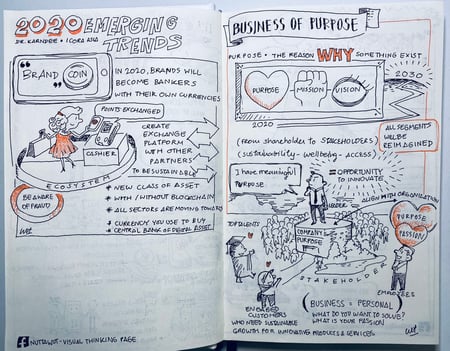 2020 EMERGING
TRENDS
DR. KARNDEE •
"BRAND COIN"
IN 2020, BRANDS WILL
BECOME BANKERS
WITH THEIR OWN CURRENCIES
POINTS EXCHANGED
CASHIER
CREATE
EXCHANGE
PLATFORM
WITH OTHER
PARTNERS
TO BE SUSTAINABLE
ECOSYSTEM
BEAWARE
OF FRAUD
* NEW CLASS OF ASSET
* WITH / WITHOUT BLOCKCHAIN
* ALL SECTORS ARE MOVING TOWARDS
* CURRENCY YOU USE TO BUY
* CENTRAL BANK OF DIGITAL ASSET
NUTTAWUT-VISUAL THINKING PAGE
BUSINESS OF PURPOSE
PURPOSE • THE REASON WHY SOMETHING EXIST
PURPOSE
MISSION
VISION
2030
2020
ALL SEGMENTS
WILL BE
REIMAGINED
(from shareholder to STAKEHOLDERS)
(sustainability - wellbeing - ACCESS)
I have meaningful
PURPOSE
= OPPORTUNITY
TO INNOVATE
LEADER
ALIGN WITH ORGANIZATION
TOP TALENTS
COMPANY
PURPOSE
PURPOSE
PASSION
STAKEHOLDER
EMPLOYEES
ENGAGED
CUSTOMERS
WHO NEED SUSTAINABLE
GROWTH FOR INNOVATIVE PRODUCTS & SERVICES
(BUSINESS = PERSONAL)
WHAT DO YOU WANT TO SOLVE?
WHAT IS YOUR PASSION